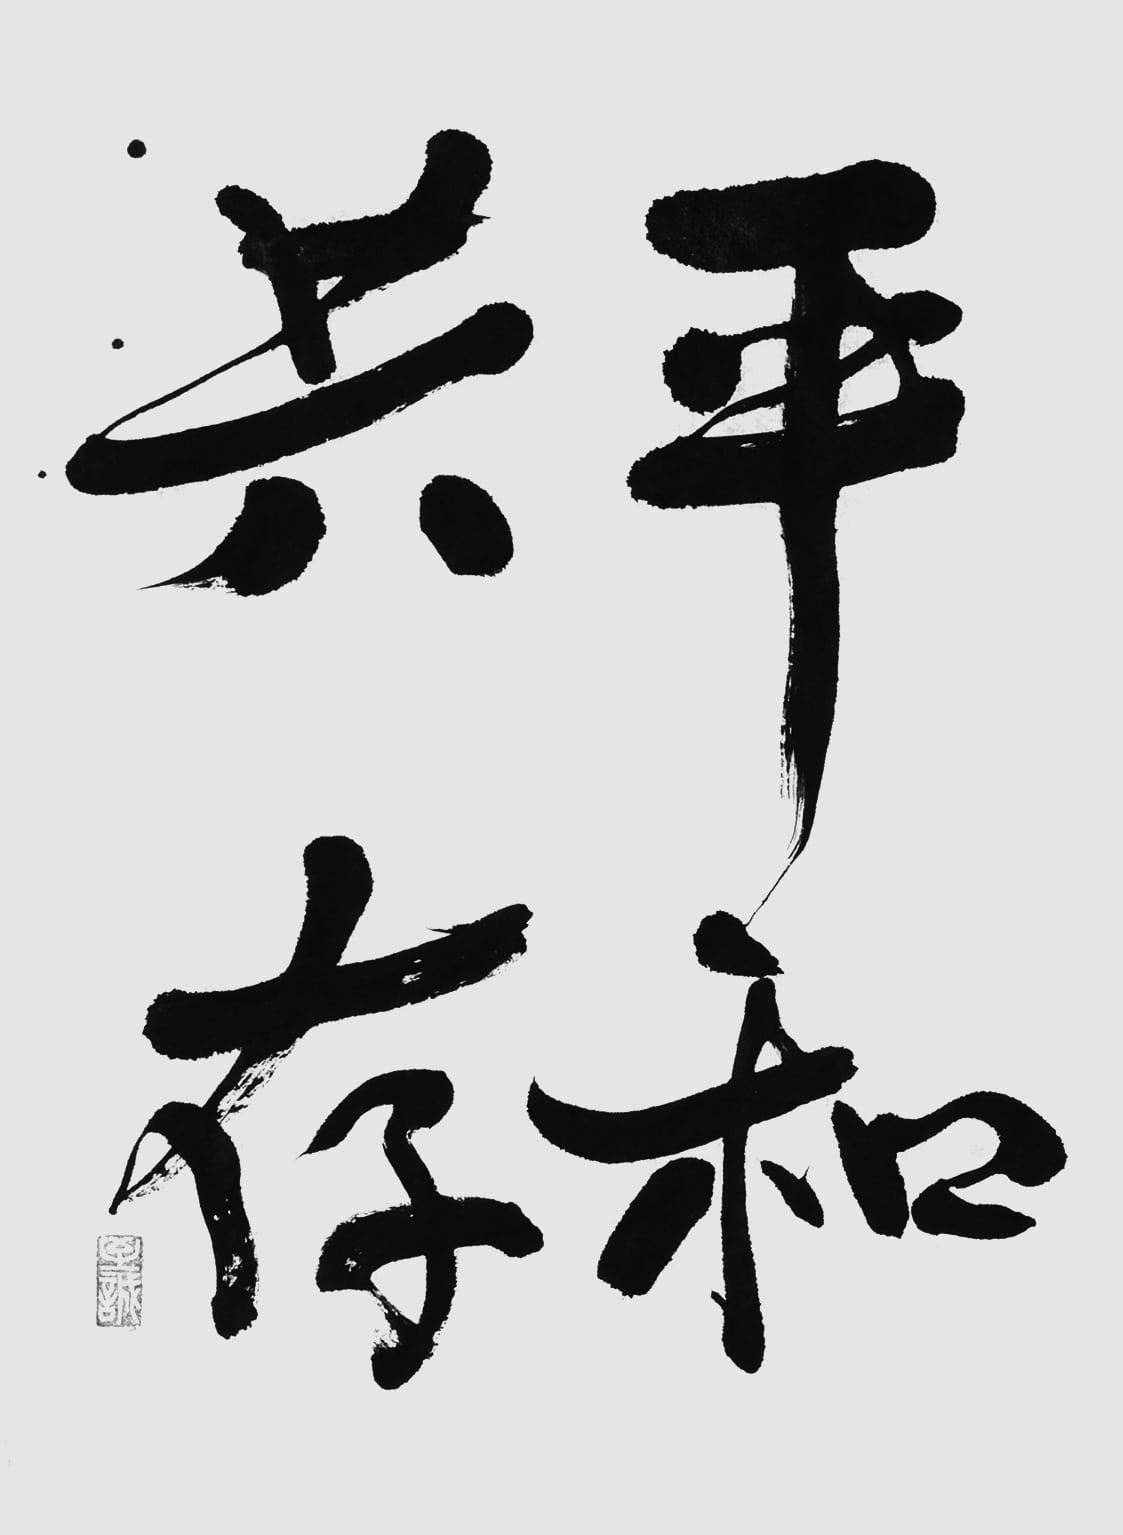 平和
共存